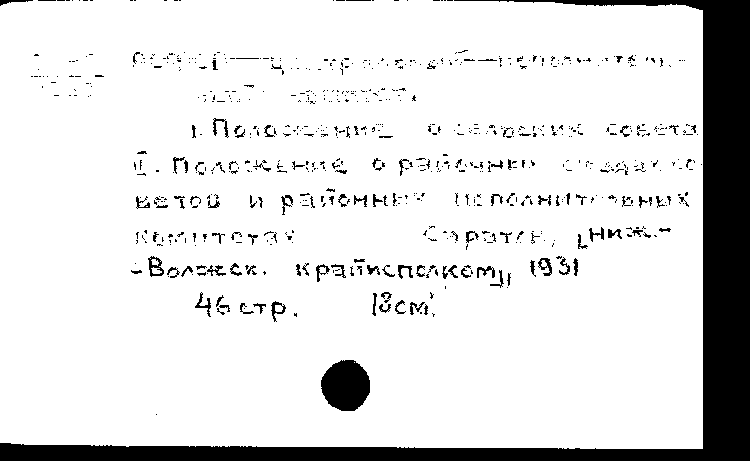 РСФСР Центральный исполнитель-
ный комитет.
I. Положение о сельских совета
II. Положение о районных съездах со
ветов и районных исполнительных
комитетах Саратов, [Ниж.-
-Волжск. крайисполком], 1931
46 стр. 18 см.